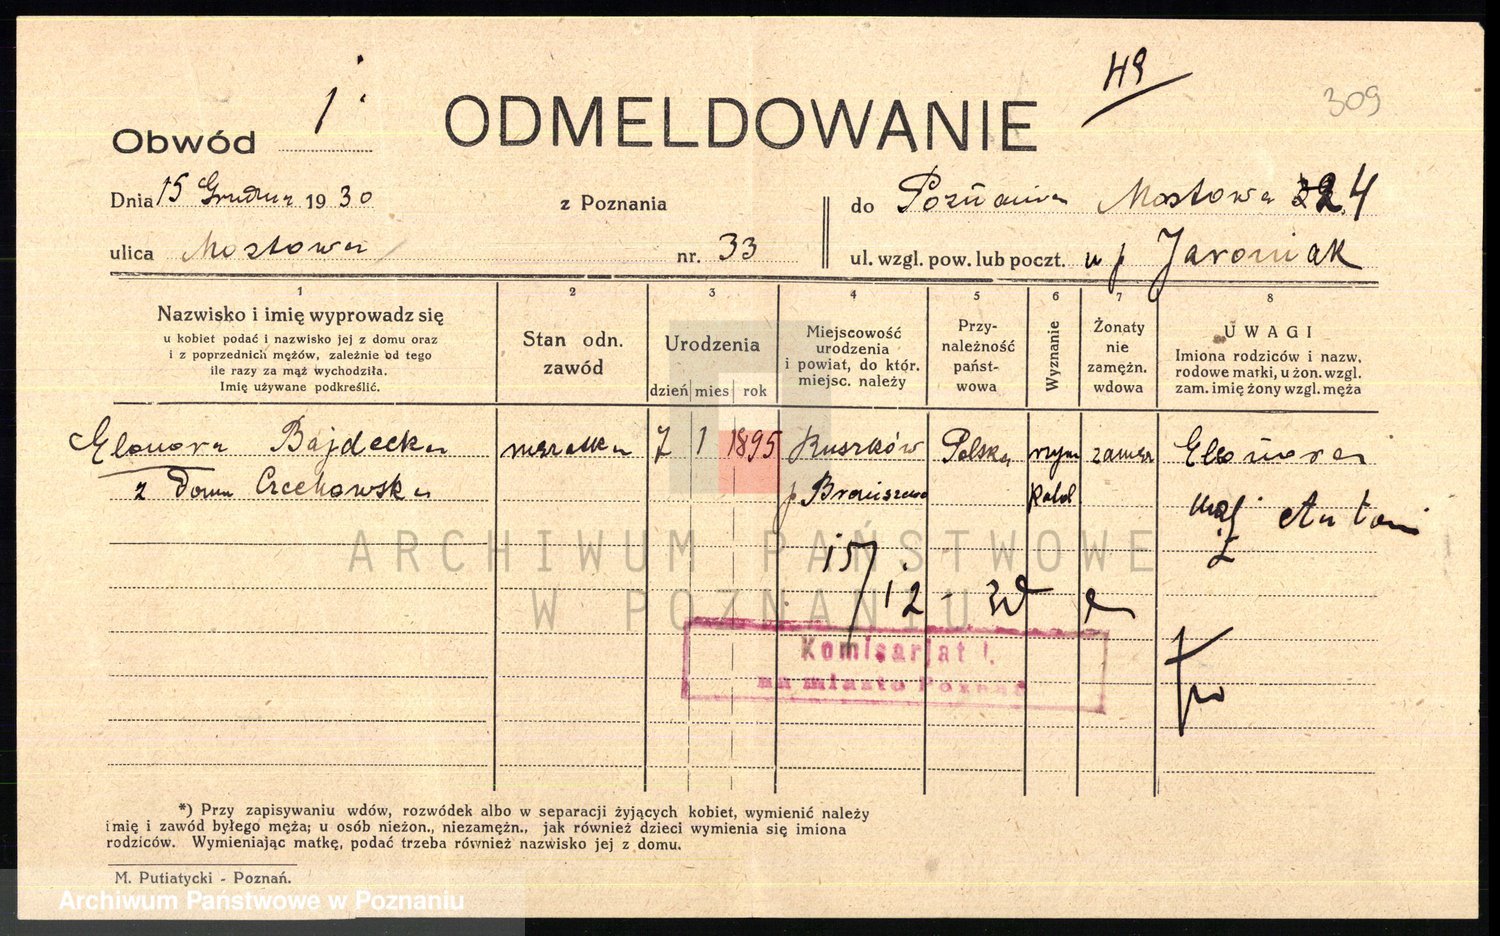 49
309
ODMELDOWANIE
Obwód 1
Dnia 15 Grudnia 1930 z Poznania do Poznania Mostowa 24
ulica Mostowa nr. 33 ul. wzgl. pow. lub poczt. u p Jaroniak
1 2 3 4 5 6 7 8
Nazwisko i imię wyprowadz się
u kobiet podać i nazwisko jej z domu oraz
i z poprzednich mężów, zależnie od tego
ile razy za mąż wychodziła.
Imię używane podkreślić.
Stan odn.
zawód
Urodzenia
dzień mies rok
Miejscowość
urodzenia
i powiat, do któr.
miejsc. należy
Przy-
należność
państ-
wowa
Wyznanie
Żonaty
nie
zamężn.
wdowa
UWAGI
Imiona rodziców i nazw.
rodowe matki, u żon. wzgl.
zam. imię żony wzgl. męża
Elonora Bajdecka mężatka 7 1 1895 Ruszków Polska rzym zamęż Eleonora
z domu Czechowska p Broniszewo Katol
mąż Antoni
ARCHIWUM PAŃSTWOWE
W POZNANIU
15/12 - 30
Komisarjat I.
na miasto Poznań
*) Przy zapisywaniu wdów, rozwódek albo w separacji żyjących kobiet, wymienić należy
imię i zawód byłego męża; u osób nieżon., niezamężn., jak również dzieci wymienia się imiona
rodziców. Wymieniając matkę, podać trzeba również nazwisko jej z domu.
M. Putiatycki - Poznań.
Archiwum Państwowe w Poznaniu